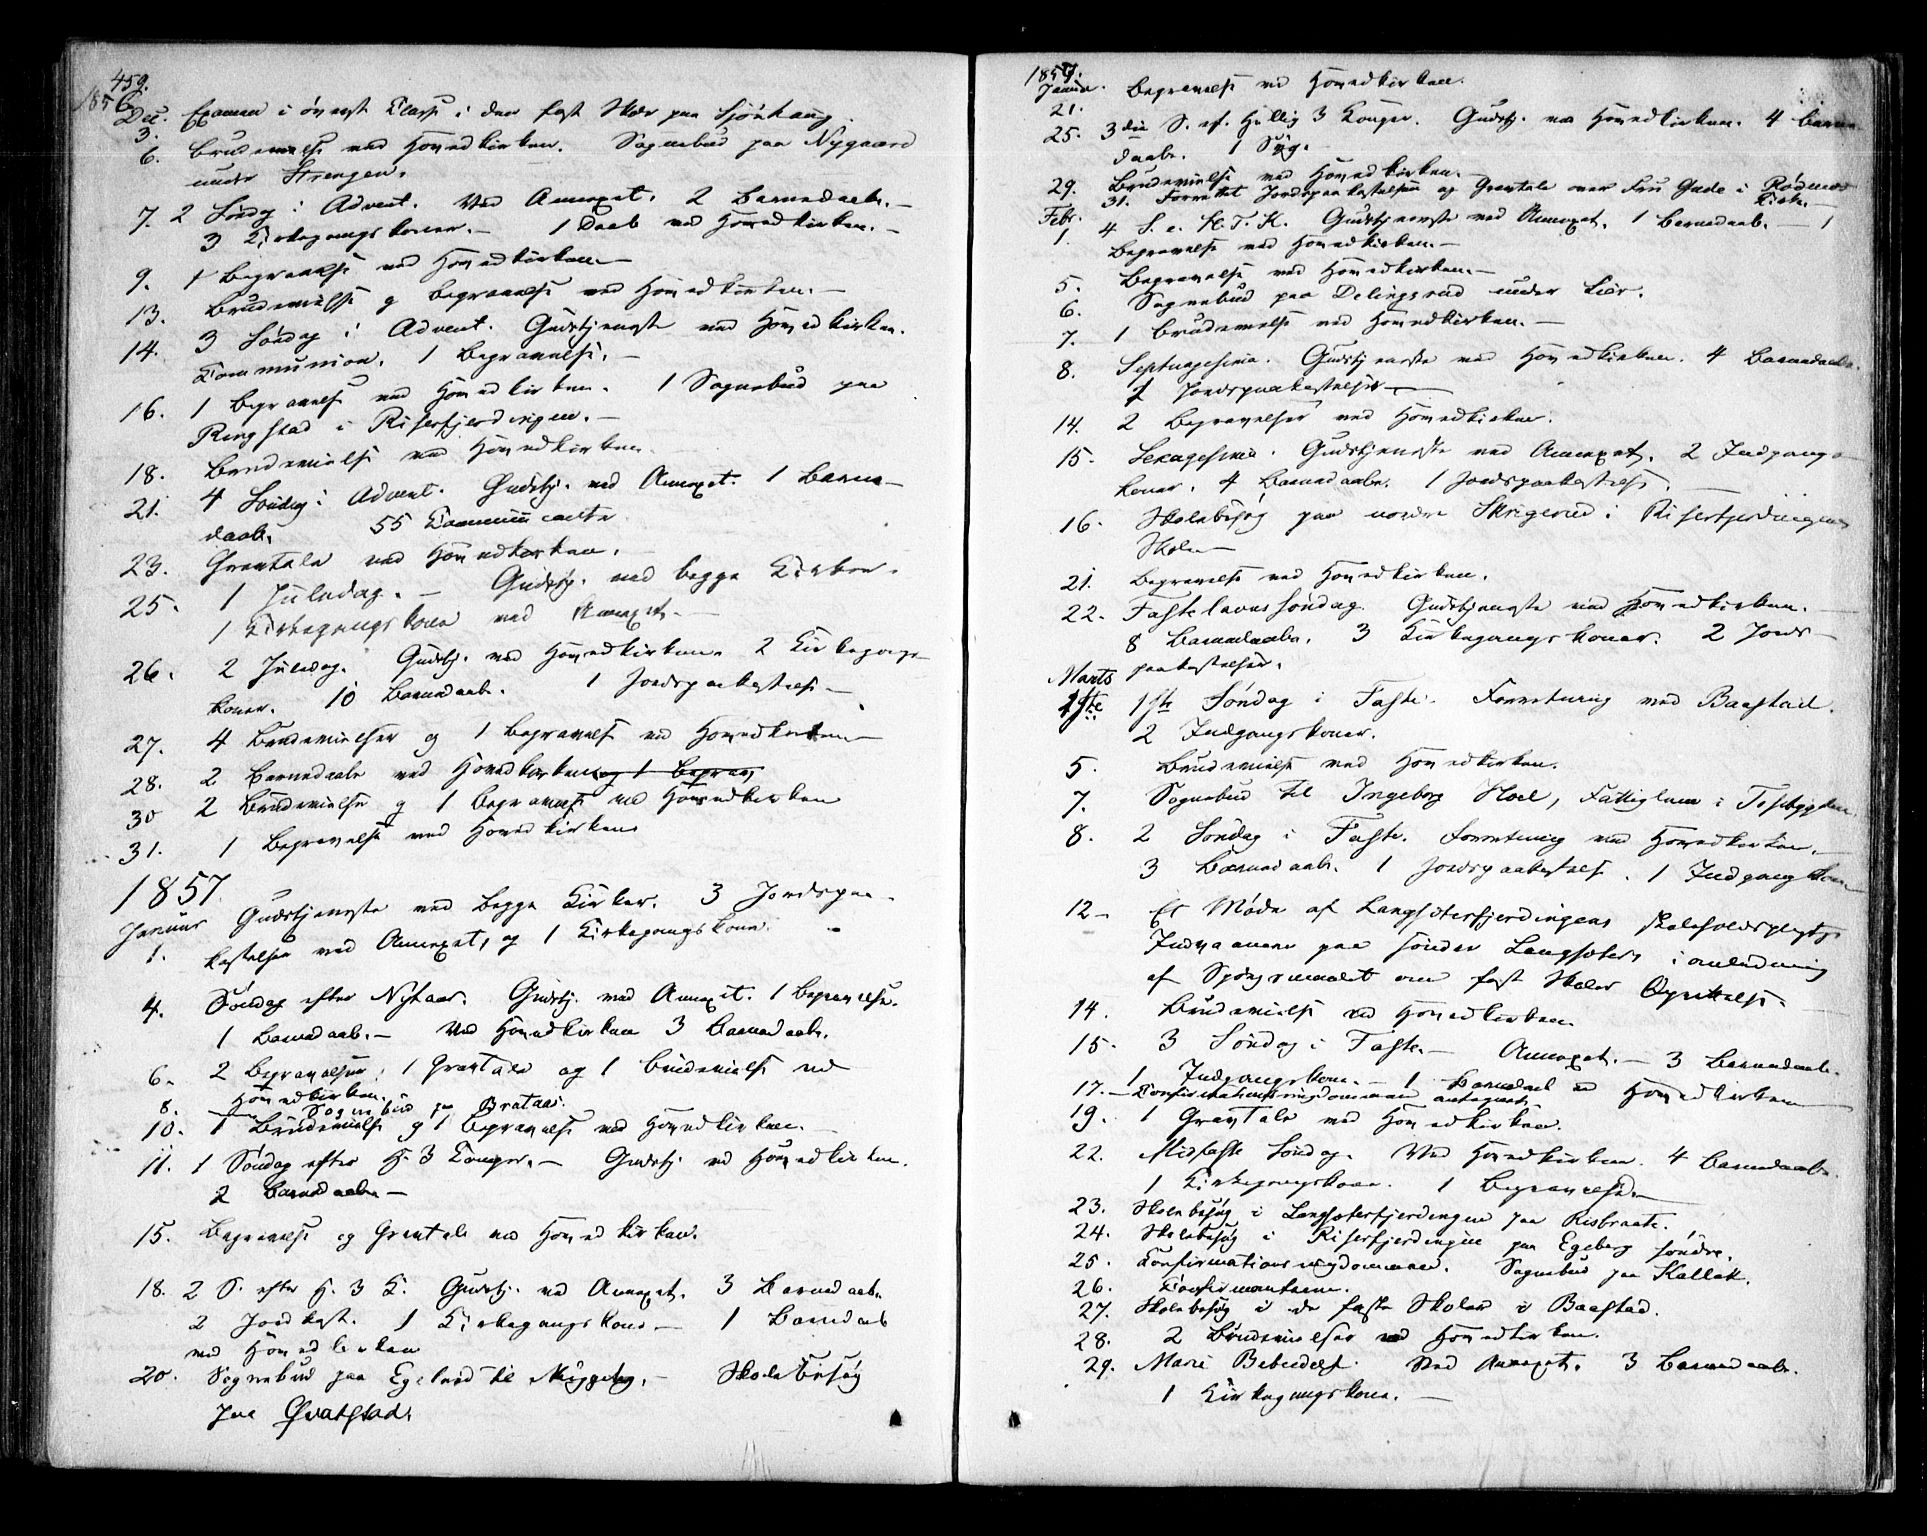 459.
1856
Dec. Examen i överste Classe i den fast Skole paa Sjönhaug.
3.
6. Brudevielse ved Hovedkirken. Sognebud paa Nygaard
under Strengen.
7. 2 Söndag i Advent. Ved Annexet. 2 Barnedaab. —
3 Kirkegangskoner. — 1 Daab ved Hovedkirken. —
9. 1 Begravelse ved Hovedkirken —
13. Brudevielse og Begravelse ved Hovedkirken. —
14. 3 Söndag i Advent. Gudstjeneste ved Hovedkirken.
Communion. 1 Begravelse. —
16. 1 Begravelse ved Hovedkirken. 1 Sognebud paa
Ringstad i Riserfjerdingen. —
18. Brudevielse ved Hovedkirken.
21. 4 Söndag i Advent. Gudstj. ved Annexet. 1 Barne-
daab. 55 Communicanter
23. Gravtale ved Hovedkirken. —
25. 1 Juledag. — Gudstj. ved begge Kirker.
1 Kirkegangskone ved Annexet. —
26. 2 Juledag. Gudstj. ved Hovedkirken. 2 Kirkegangs-
koner. 10 Barnedaab. 1 Jordspaakastelse —
27. 4 Brudevielser og 1 Begravelse ved Hovedkirken
28. 2 Barnedaab ved Hovedkirken og 1 Begrav
30 2 Brudevielser og 1 Begravelse ved Hovedkirken
31. 1 Begravelse ved Hovedkirken
1857.
Januar Gudstjeneste ved begge Kirker. 3 Jordspaa-
1. kastelser ved Annexet, og 1 Kirkegangskone.
4. Söndag efter Nytaar. Gudstj. ved Annexet. 1 Begravelse.
1 Barnedaab. — Ved Hovedkirken 3 Barnedaab.
6. 2 Begravelser, 1 Gravtale og 1 Brudevielse ved
Hovedkirken.
8. Sognebud paa Brataas.
10. 1 Brudevielse og 1 Begravelse ved Hovedkirken. —
11. 1 Söndag efter H. 3 Konger. — Gudstj. ved Hovedkirken.
2 Barnedaab —
15. Begravelse og Gravtale ved Hovedkirken.
18. 2 S. efter H. 3 K. Gudstj. ved Annexet. 3 Barnedaab.
2 Jordkast. 1 Kirkegangskone — 1 Barnedaab
ved Hovedkirken
20. Sognebud paa Egelund til Müggeby. — Skolebesög
paa Qvatstad.
1857.
Januar Begravelse ved Hovedkirken.
21.
25. 3die S. ef. Hellig 3 Konger. Gudstj. ved Hovedkirken. 4 Barne
daab. 1 Syg.
29. Brudevielse ved Hovedkirken. —
31. Forrettet Jordspaakastelse og Gravtale over Fru Gude i Rödenæs
Kirke. —
Febr. 4 S. e. H. T. K. Gudstjeneste ved Annexet. 1 Barnedaab. — 1
1. Begravelse ved Hovedkirken. —
5. Begravelse ved Hovedkirken. —
6. Sognebud paa Delingsrud under Lier.
7. 1 Brudevielse ved Hovedkirken. —
8. Septuagesima. Gudstjeneste ved Hovedkirken. 4 Barnedaab.
2 Jordspaakastelser —
14. 2 Begravelser ved Hovedkirken.
15. Sexagesima. Gudstjeneste ved Annexet. 2 Indgangs-
koner. 4 Barnedaab. 1 Jordspaakastelse. —
16. Skolebesög paa nordre Skrigerud i Riserfjerdingens
Skole —
21. Begravelse ved Hovedkirken.
22. Fastelavns Söndag. Gudstjeneste ved Hovedkirken. —
8 Barnedaab. 3 Kirkegangskoner. 2 Jords-
paakastelser.
Marts
1ste 1ste Söndag i Faste. Forretning ved Baastad.
2 Indgangskoner.
5. Brudevielse ved Hovedkirken.
7. Sognebud til Ingeborg Hoel, Fattiglem i
8. 2 Söndag i Faste. Forretning ved Hovedkirken. —
3 Barnedaab. 1 Jordspaakastelse. 1 Indgangskone
12 — Et Möde af Langsæterfjerdingens skoleholdspligtige
Indvaanere paa Sönder Langsæter, i anledning
af Spörgsmaalet om fast Skoles Oprettelse.
14. Brudevielse ved Hovedkirken.
15. 3 Söndag i Faste. — Annexet. — 3 Barnedaab.
1 Indgangskone. — 1 Barnedaab ved Hovedkirken
17. — Confirmationsungdommen antegnet
19. 1 Gravtale ved Hovedkirken.
22. Midfaste Söndag. Ved Hovedkirken. 4 Barnedaab.
1 Kirkegangskone. 1 Begravelse. —
23. Skolebesög i Langsæterfjerdingen paa Risbraate.
24. Skolebesög i Riserfjerdingen paa Egeberg söndre.
25. Confirmationsungdommen. Sognebud paa Kallak.
26. Confirmanterne.
27. Skolebesög i de faste Skoler i Baastad.
28. 2 Brudevielser ved Hovedkirken.
29. Mariæ Bebudelse. Ved Annexet. 3 Barnedaab.
1 Kirkegangskone. —